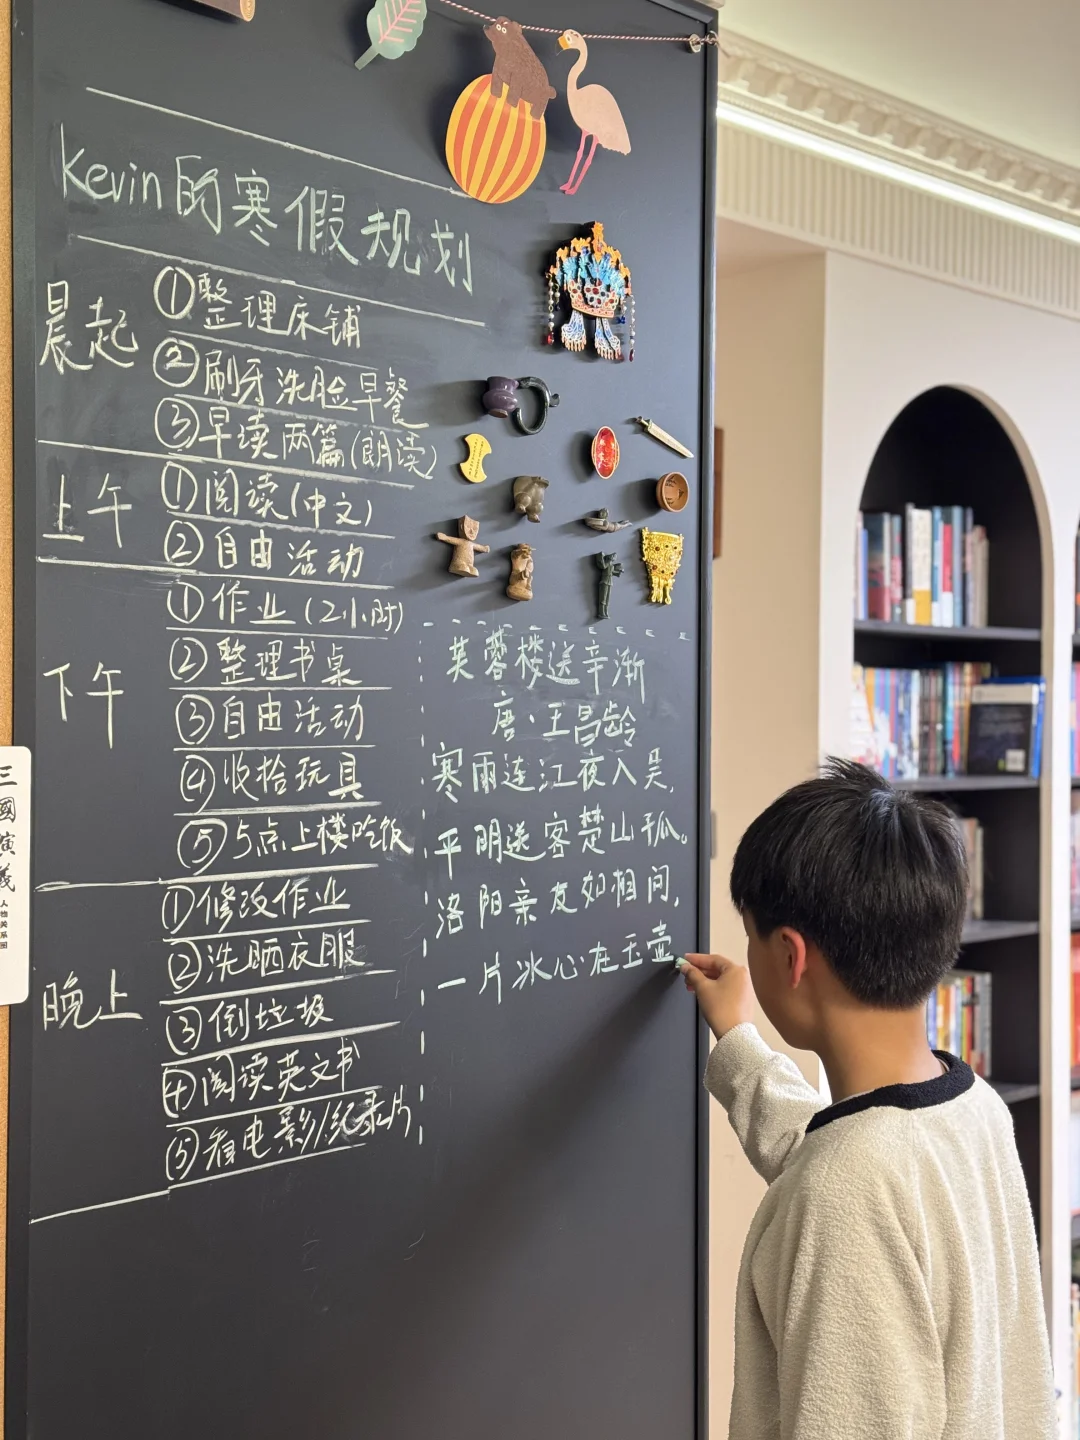 Kevin的寒假规划
晨起
①整理床铺
②刷牙洗脸早餐
③早读两篇(朗读)
上午
①阅读(中文)
②自由活动
下午
①作业(2小时)
②整理书桌
③自由活动
④收拾玩具
⑤5点上楼吃饭
晚上
①修改作业
②洗晒衣服
③倒垃圾
④阅读英文书
⑤看电影/纪录片
芙蓉楼送辛渐
唐·王昌龄
寒雨连江夜入吴,
平明送客楚山孤。
洛阳亲友如相问,
一片冰心在玉壶
三國演義
人物关系图